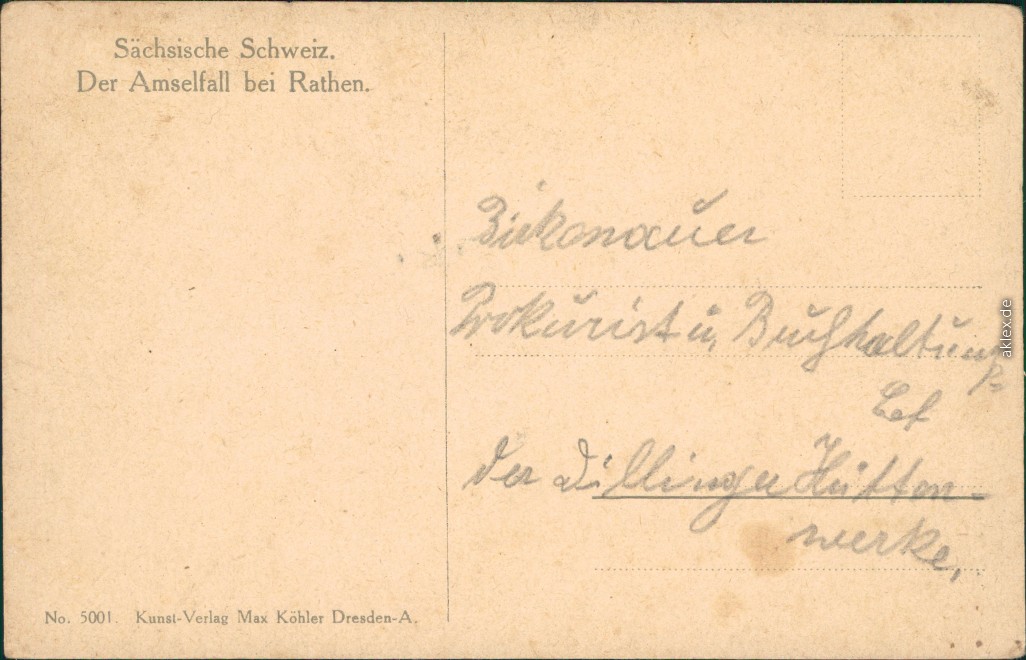 Sächsische Schweiz.
Der Amselfall bei Rathen.
Birkenauer
Prokurist u. Buchhaltungs-
der Dillinger Hütten-
werke.
No. 5001. Kunst-Verlag Max Köhler Dresden-A.
aklex.de